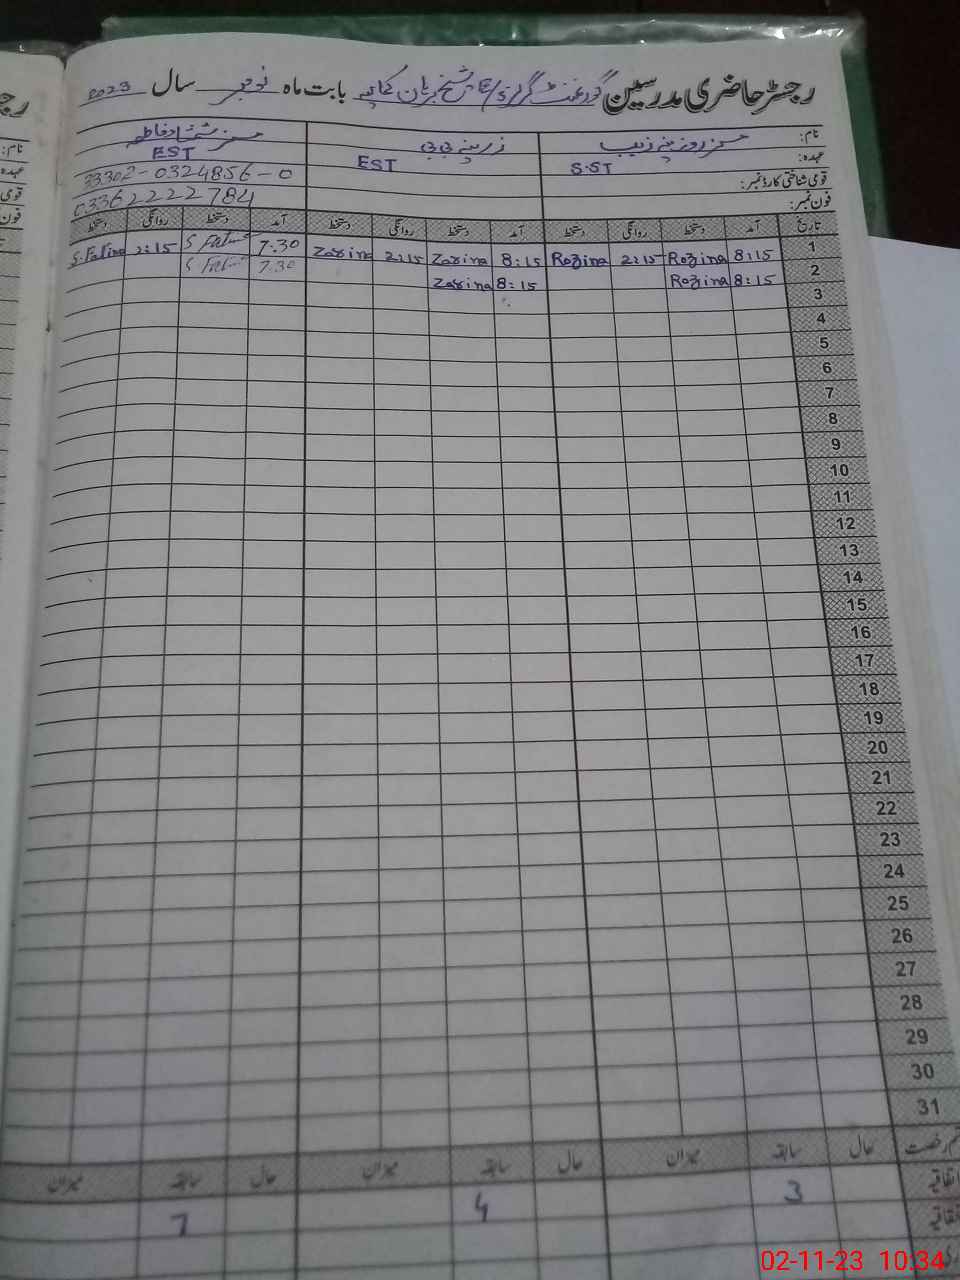 رجسٹر حاضری مدرسین گورنمنٹ گرلز بابت ماہ نومبر سال 2023
نام: مسز روزینہ زیب زرینہ بی بی مسز شمشاد فاطمہ
عہدہ: S.ST EST EST
قومی شناختی کارڈ نمبر: 33302-0324856-0
فون نمبر: 03362222784
تاریخ آمد دستخط روانگی دستخط آمد دستخط روانگی دستخط آمد دستخط روانگی دستخط
1 8:15 Rozina 2:15 Rozina 8:15 Zarina 2:15 Zarina 7.30 S Fatima 2:15 S.Fatima
2 8:15 Rozina 8:15 Zarina 7.30 S Fatima
3
4
5
6
7
8
9
10
11
12
13
14
15
16
17
18
19
20
21
22
23
24
25
26
27
28
29
30
31
رخصت حال سابقہ میزان حال سابقہ میزان حال سابقہ میزان
اتفاقیہ 3 4 7
02-11-23 10:34